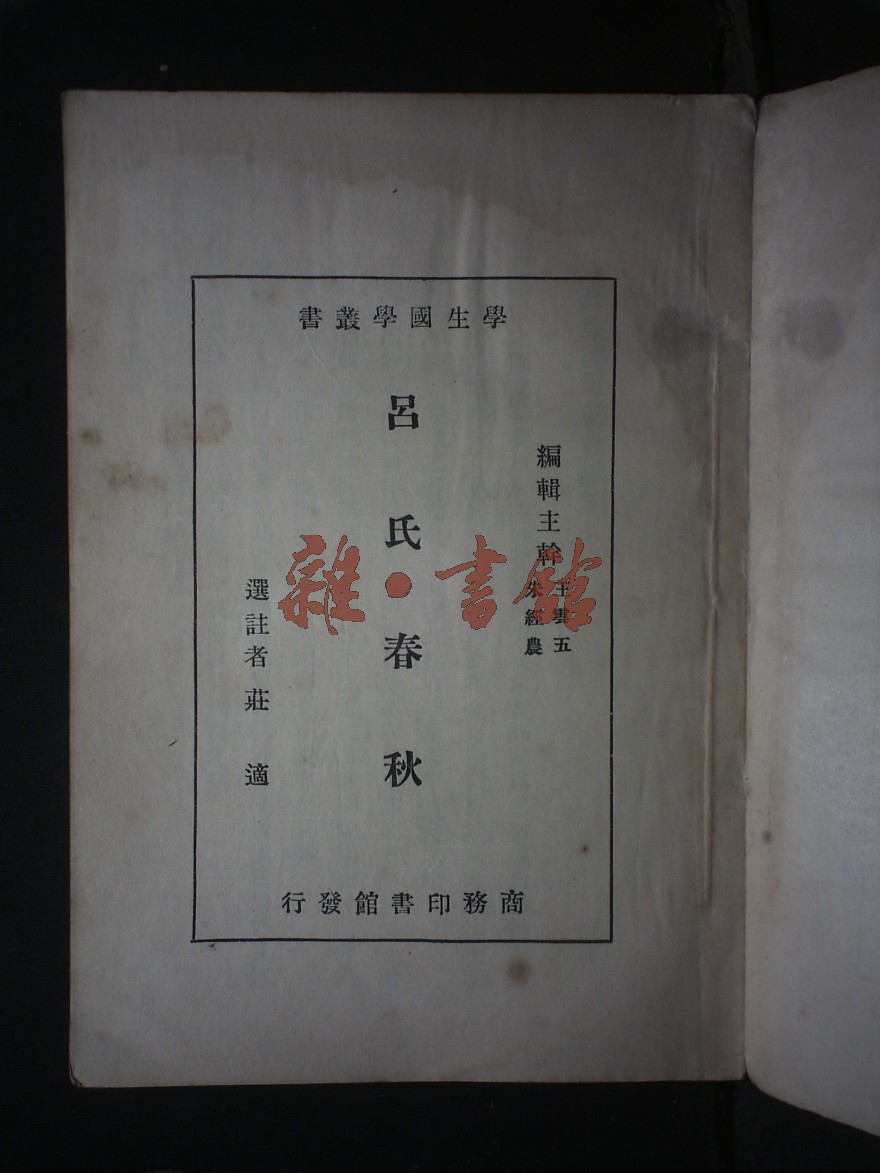 學生國學叢書
編輯主幹
王雲五
朱經農
呂氏春秋
選註者 莊適
商務印書館發行
雜·書館